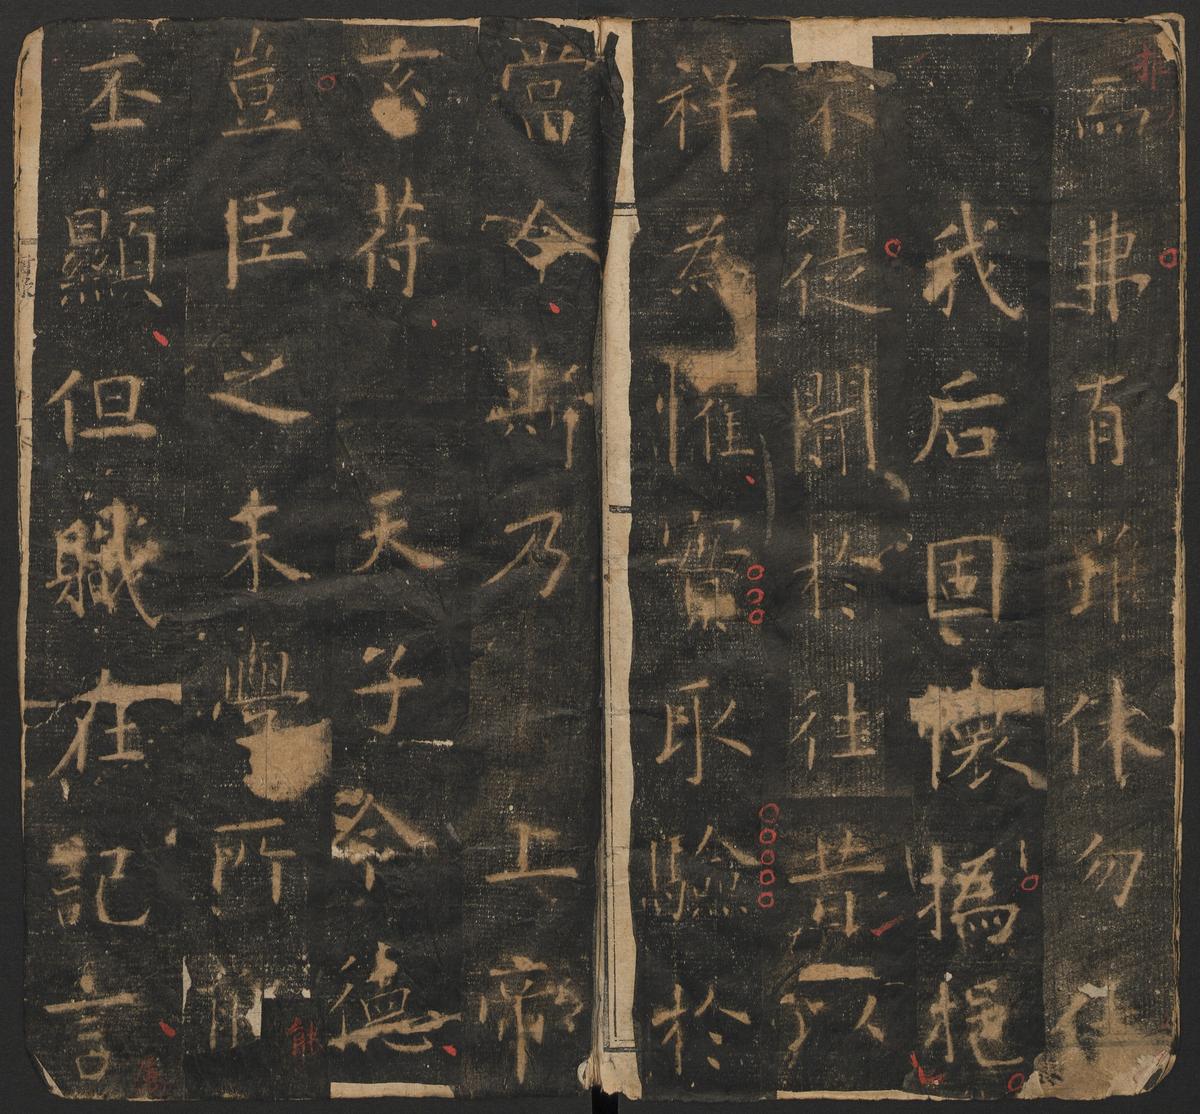 推
而弗有雖休勿休
我后固懷撝挹
不徒聞於往昔以
祥為懼實取驗於
當今斯乃上帝
玄符天子令德
豈臣之末學所能
能
丕顯但職在記言